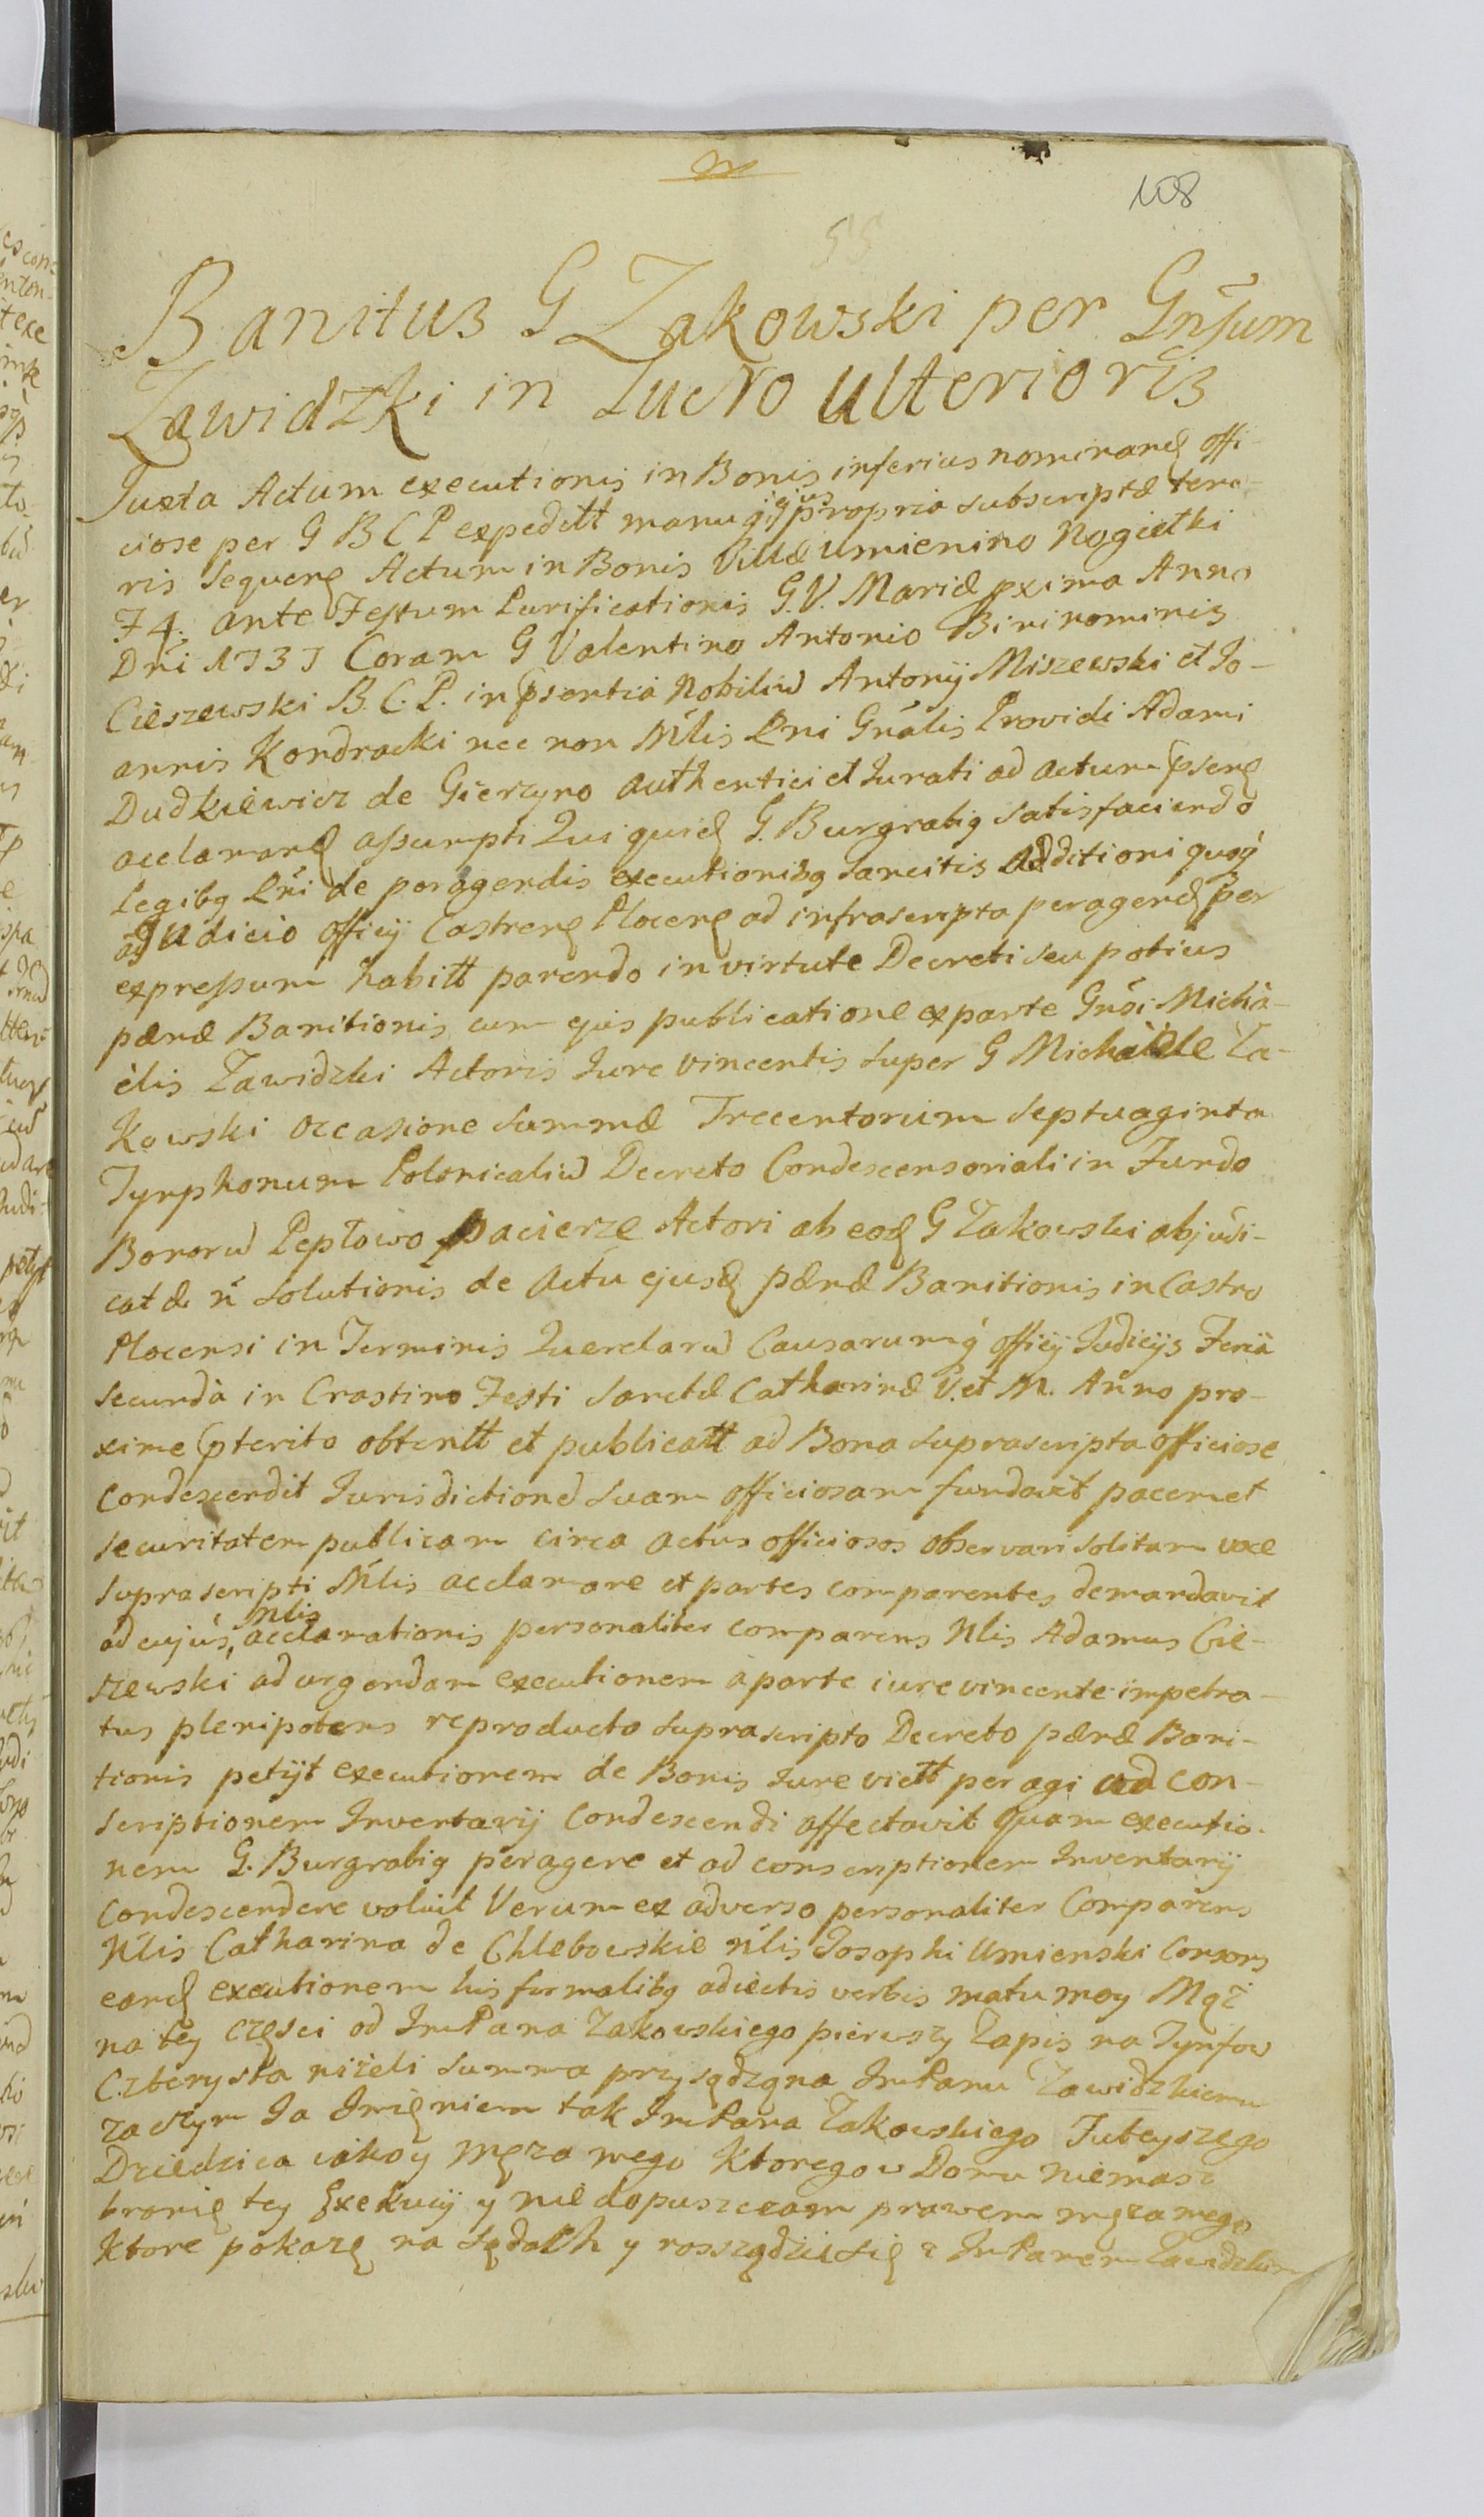 108
55
Banitus G Zakowski per Gnsum
Zawidzki in Lucro ulterioris
Juxta Actum executionis in Bonis inferius nominanđ offi-
ciose per G B C P expeditt manu ejus propria subscriptæ teno-
ris sequenę Actum in Bonis Villæ Umienino Nagietki
F 4. ante Festum Purificationis G. V. Mariæ pxima Anno
Dni 1737 Coram G Valentino Antonio Binominis
Cieszewski B. C. P. in psentia Nobiliu Antonij Miszewski et Jo-
annis Kondracki nec non Mlis Rni Gnalis Providi Adami
Dudkiewicz de Gierzyno authentici et Jurati ad actum psenę
acclamanđ assumpti Qui quiđ G. Burgrabig satisfaciendo
Legibg Rni de peragendis executionibg sancitis Additioni quoq
a Judicio officij Castrenę Plocenę ad infrascripta peragenđ per
expressum habitt parendo in virtute Decreti seu potius
pænæ Banitionis cum ejus publicatione ex parte Gnsi Micha-
elis Zawidzki Actoris Jure vincentis super G Michaele Za-
kowski occasione summæ Trecentorum septuaginta
Tynphonum Polonicaliu Decreto Condescensoriali in Fundo
Bonoru Peplowo pacierze Actori ab eođ G Zakowski abjudi-
catæ n solutionis de actu ejusđ pænæ Banitionis in Castro
Plocensi in Terminis Querelaru Causarumq officij Judicijs Feria
secunda in Crastino Festi Sanctæ Catharinæ V. et M. Anno pro-
xime pterito obtentt et publicatt ad Bona suprascripta officiose
Condescendit Jurisdictione suam officiosam fundavit pacem et
securitatem publicam circa actus officiosos observari solitam voce
suprascripti Mlis acclamare et partes comparentes demandavit
ad cujus Mlis acclamationis personaliter comparens Nlis Adamus Cie-
szewski ad urgendam executionem a parte iure vincente impetra-
tus plenipotens reproducto suprascripto Decreto pænæ Bani-
tionis petijt executionem de Bonis Jure victt peragi ad con-
scriptionem Inventarij Condescendi affectavit quam executio-
nem G. Burgrabig peragere et ad conscriptionem Inventarij
Condescendere voluit Verum ex adverso personaliter Comparens
Nlis Catharina de Chlebowskie nlis Josephi Umienski Consors
eanđ executionem his formalibg adiectis verbis matu moy Mąż
na tey częsci od JmPana Zakowskiego pierwszy Zapis na Tynfow
Czterysta niżeli summa przysądzona JmPanu Zawidzkiemu
zaczym Ja Imięniem tak JmPana Zakowskiego Tuteyszego
Dziedzica iako y męza mego Ktorego w Domu niemasz
bronię tey Exekucij y nie dopuszczam prawem męza mego
Ktore pokazę na Sądach y rossządzi się z JmPanem Zawidzkim